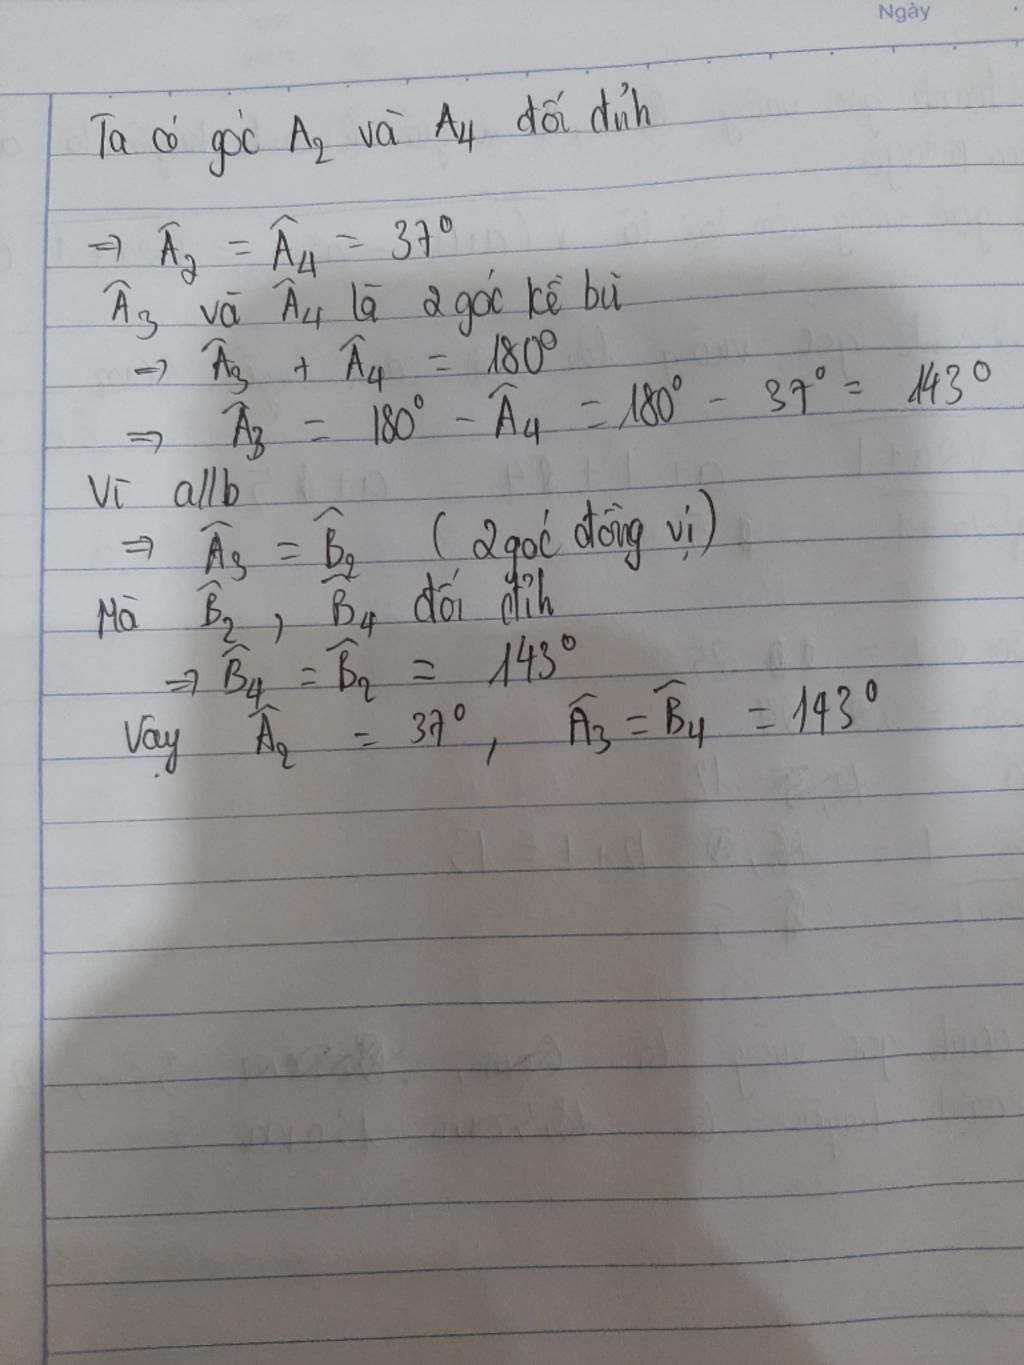 Ngày
Ta có góc A₂ và A₄ đối đỉnh
⇒ Â₂ = Â₄ = 37°
Â₃ và Â₄ là 2 góc kề bù
⇒ Â₃ + Â₄ = 180°
⇒ Â₃ = 180° - Â₄ = 180° - 37° = 143°
Vì a//b
⇒ Â₃ = B̂₂ (2 góc đồng vị)
Mà B̂₂, B̂₄ đối đỉnh
⇒ B̂₄ = B̂₂ = 143°
Vậy Â₂ = 37°, Â₃ = B̂₄ = 143°